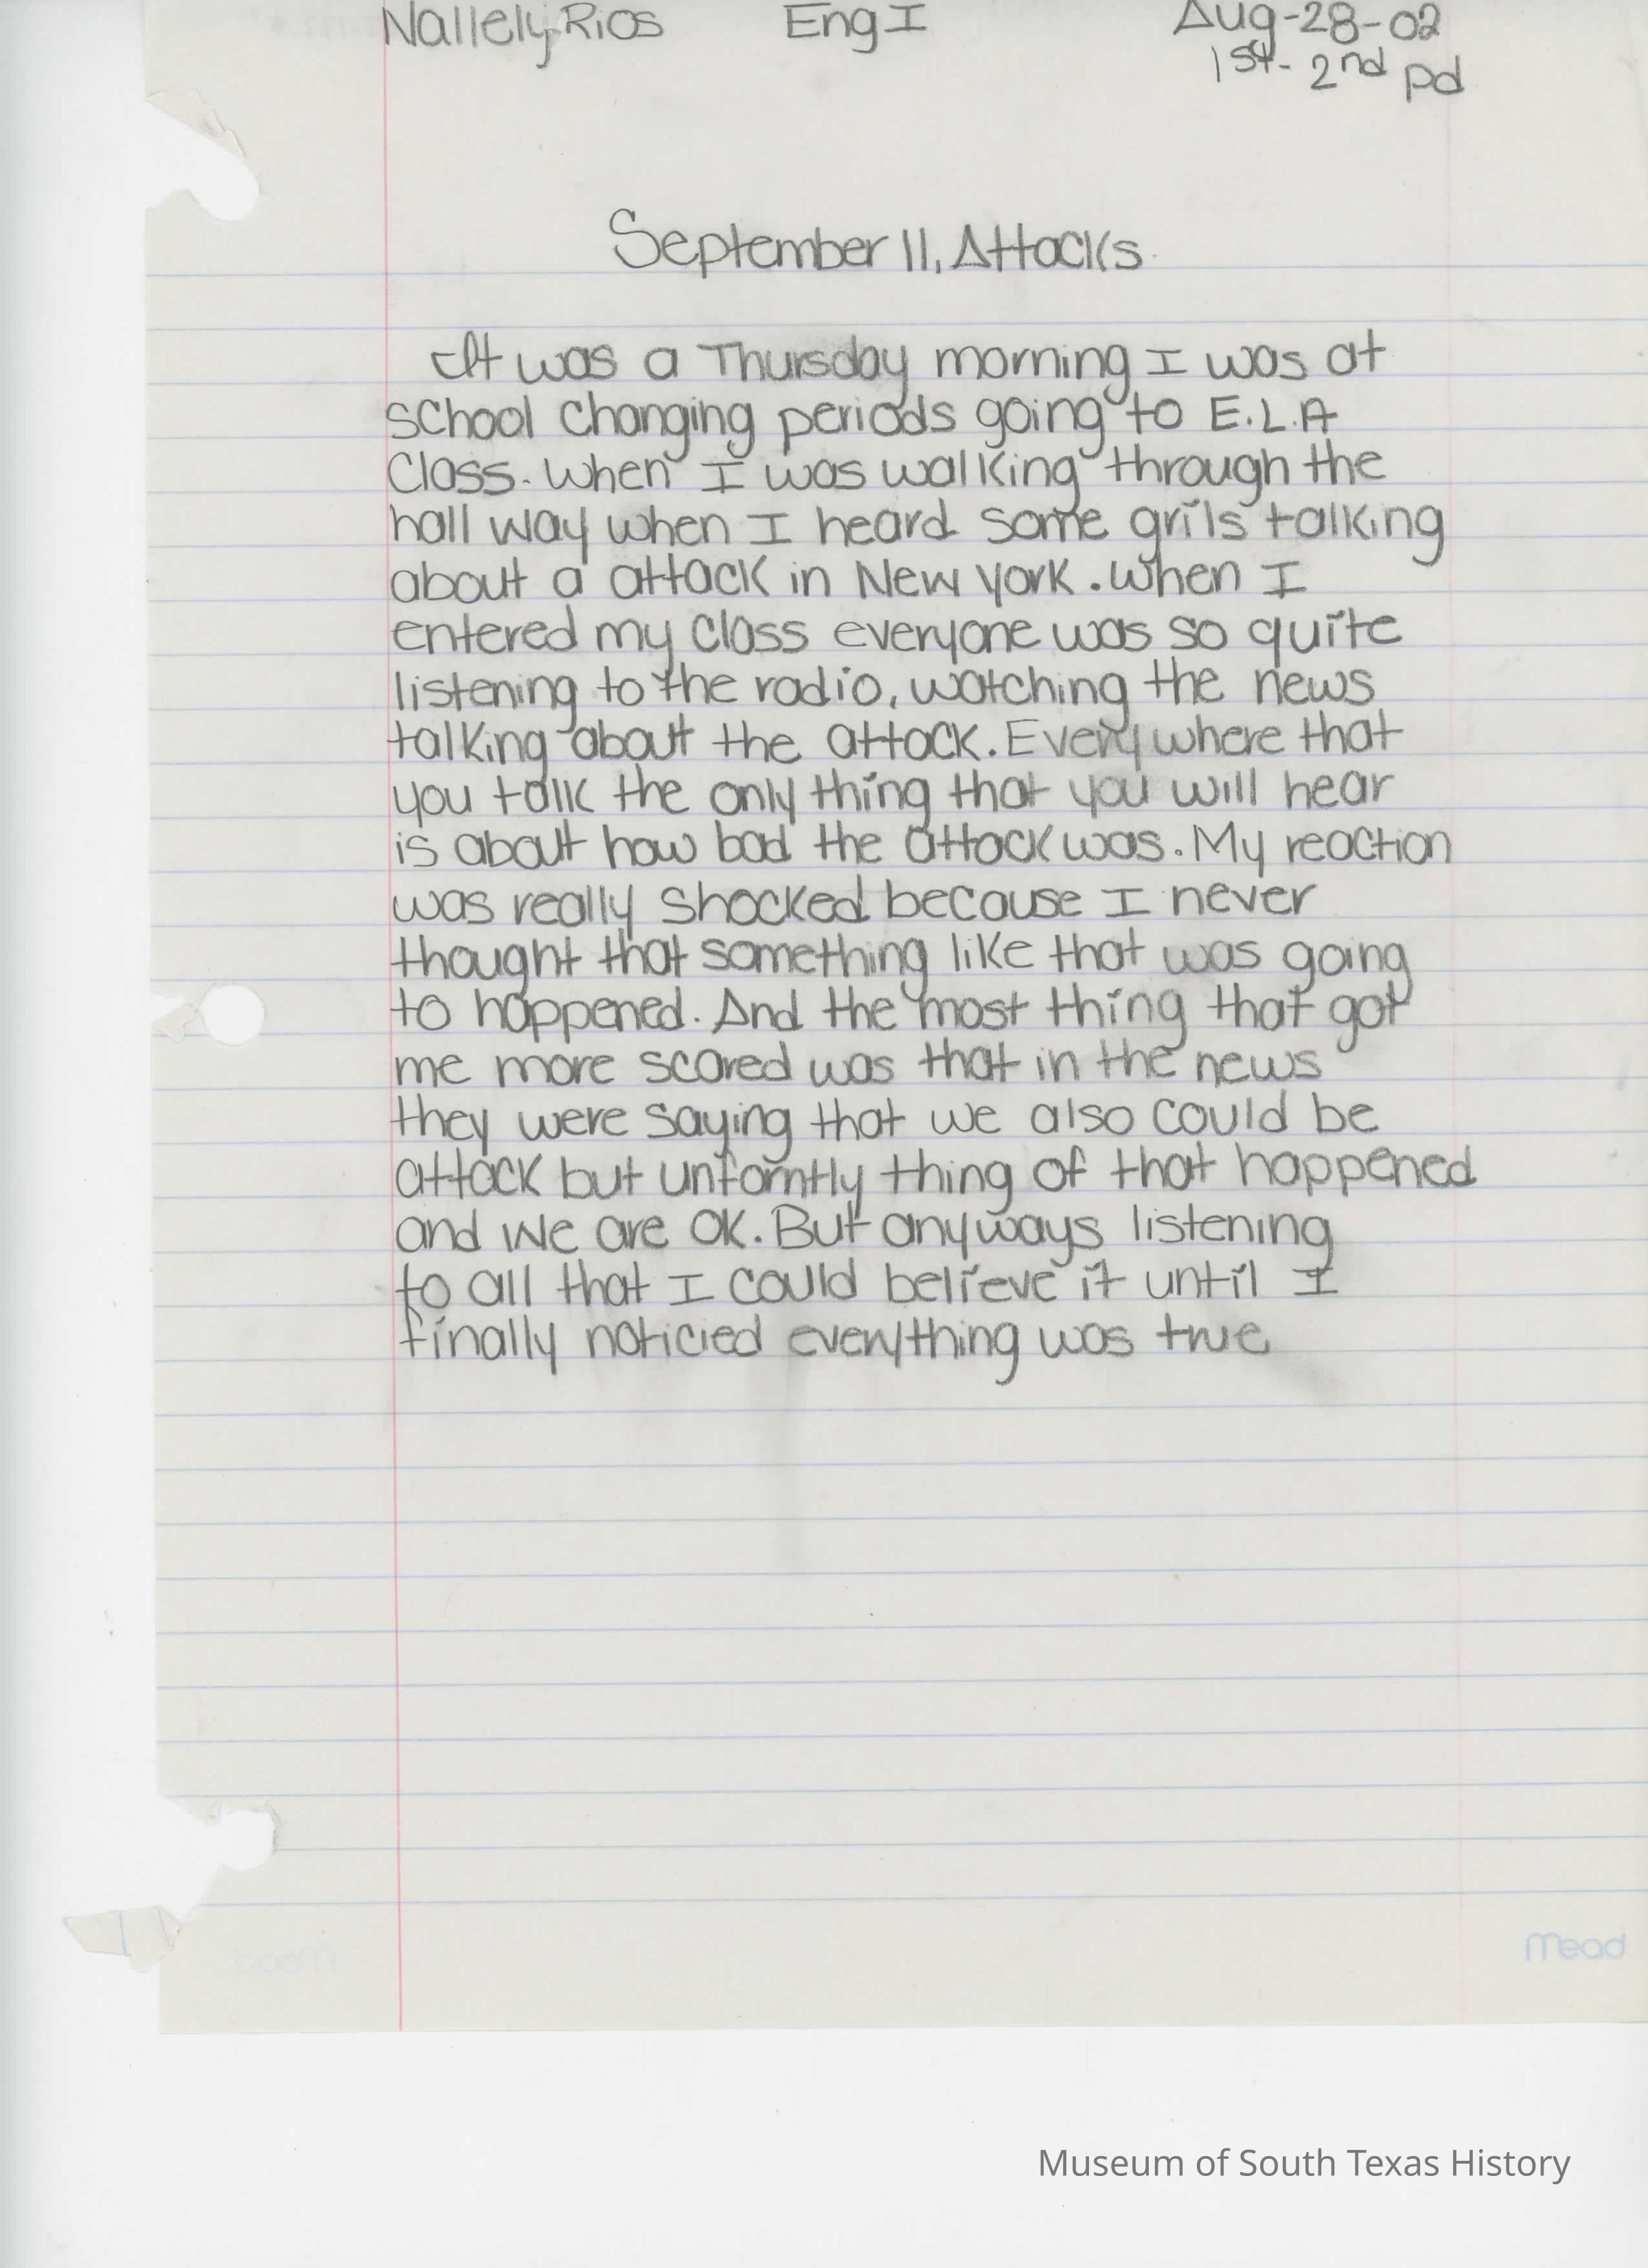 Nallely Rios Eng I Aug-28-02
1st- 2nd pd
September 11, Attacks.
It was a Thursday morning I was at
school changing periods going to E.L.A
Class. When I was walking through the
hall way when I heard some grils talking
about a attack in New York. When I
entered my class everyone was so quite
listening to the radio, watching the news
talking about the attack. Every where that
you talk the only thing that you will hear
is about how bad the attack was. My reaction
was really shocked because I never
thought that something like that was going
to happened. And the most thing that got
me more scared was that in the news
they were saying that we also could be
attack but unforntly thing of that happened
and we are OK. But anyways listening
to all that I could believe it until I
finally noticied everything was true
Mead
Museum of South Texas History